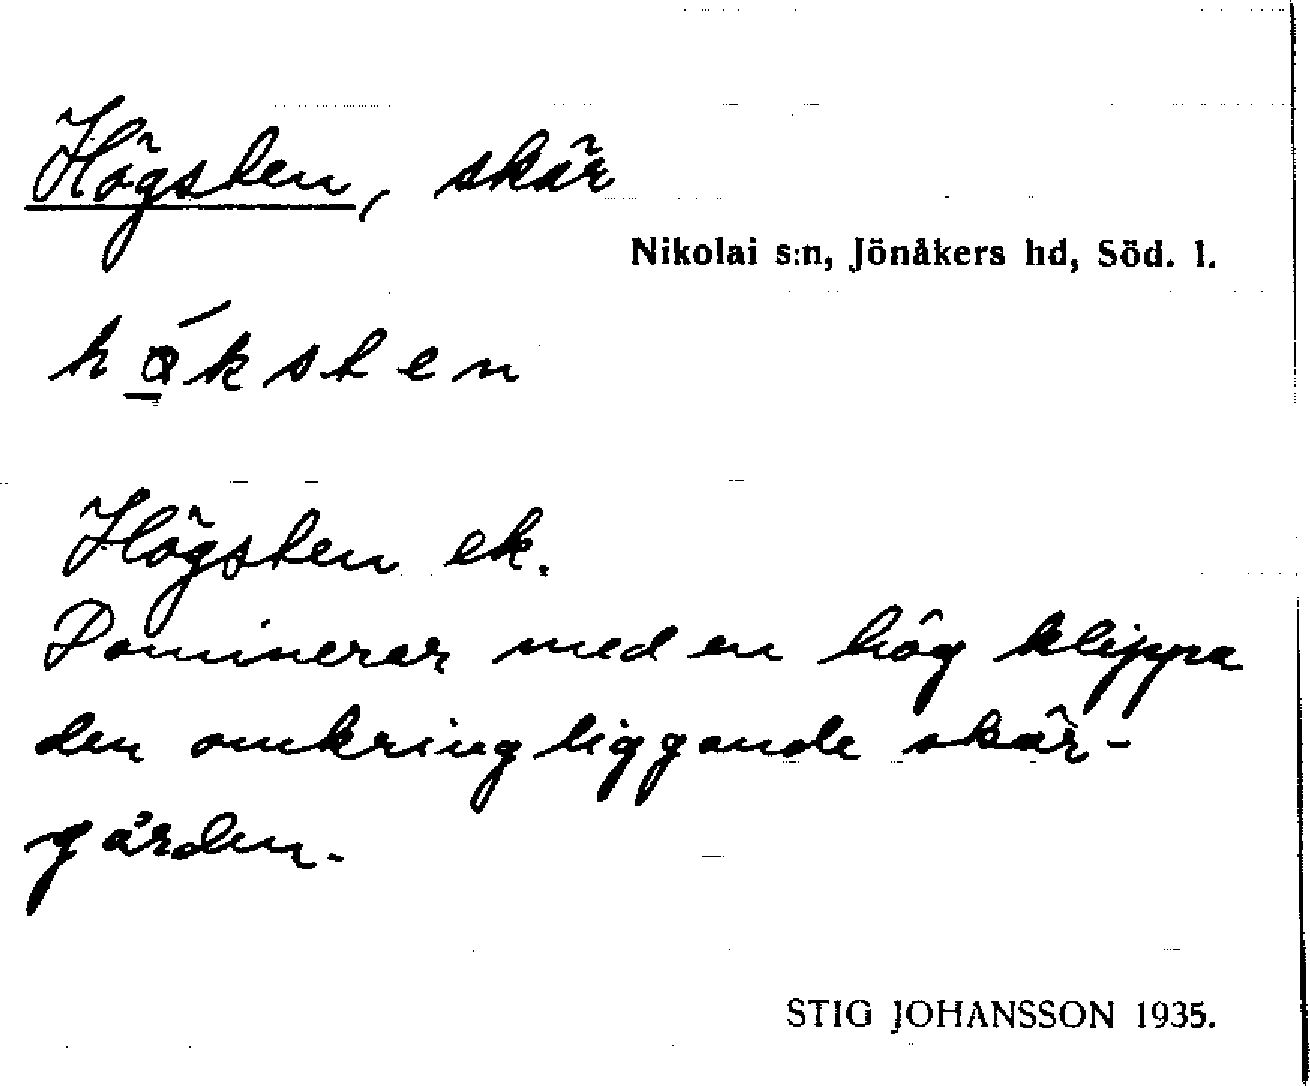 Högsten, skär
Nikolai s:n, Jönåkers hd, Söd. l.
h ǫ́ k s t e n
Högsten ek.
Dominerar med en hög klippa
den omkringliggande skär-
gården.
STIG JOHANSSON 1935.